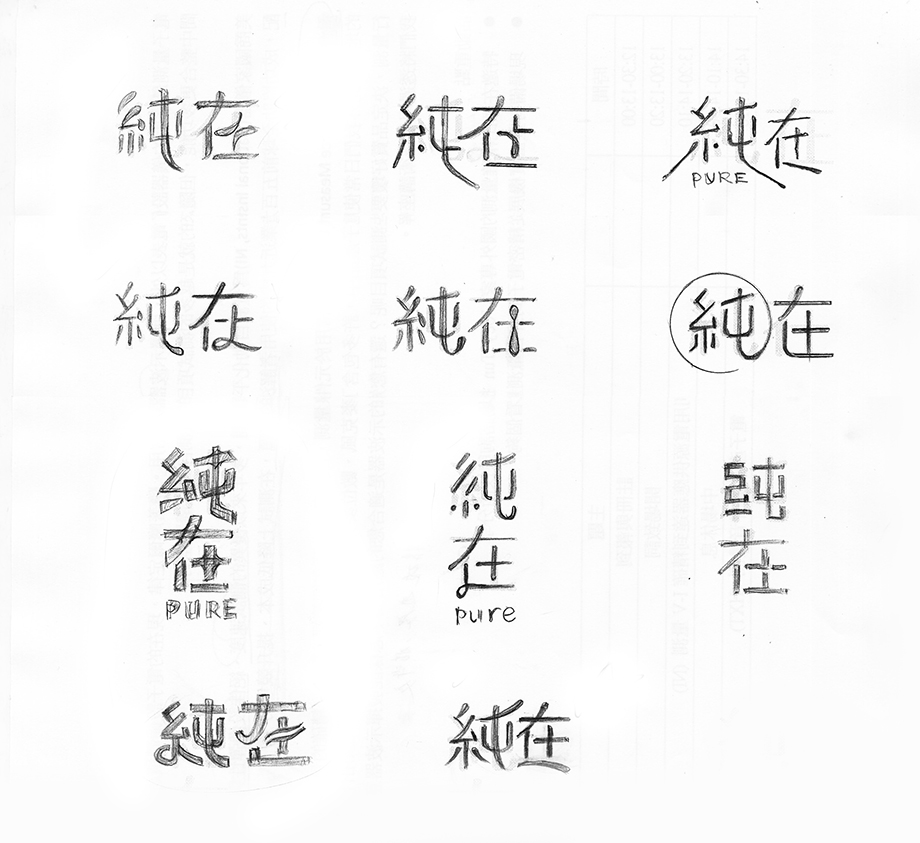 純在
純在
純在
PURE
純在
純在
純在
純
在
PURE
純
在
pure
純
在
純在
純在